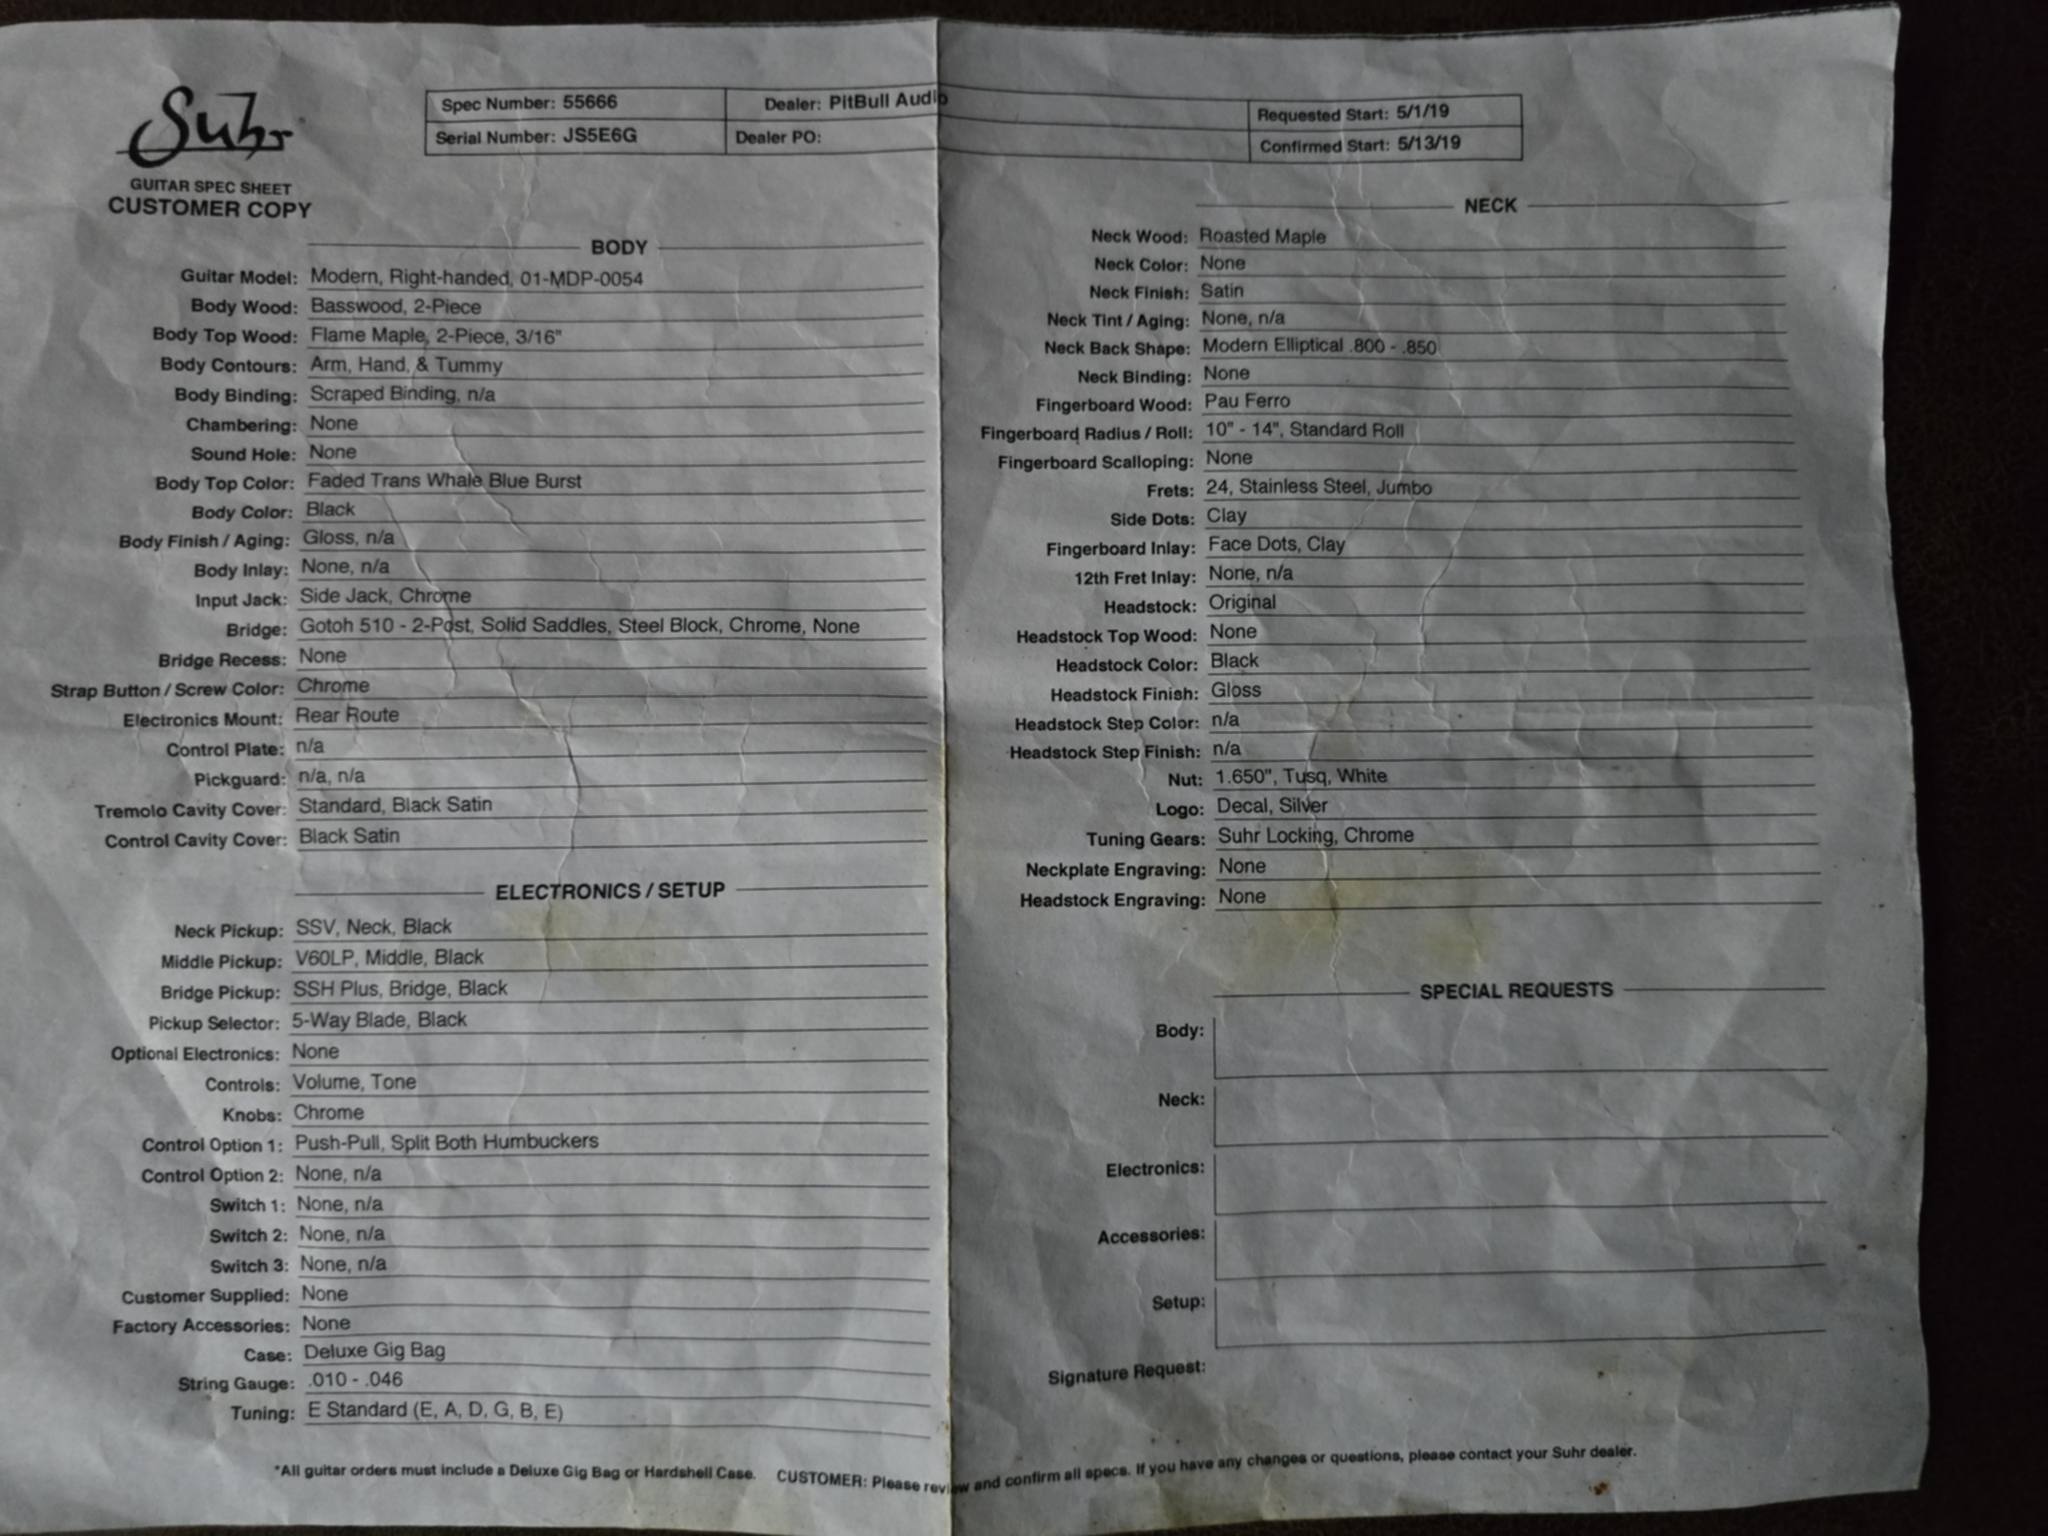 Suhr
GUITAR SPEC SHEET
CUSTOMER COPY
Spec Number: 55666
Dealer: PitBull Audio
Requested Start: 5/1/19
Serial Number: JS5E6G
Dealer PO:
Confirmed Start: 5/13/19
BODY
Guitar Model: Modern, Right-handed, 01-MDP-0054
Body Wood: Basswood, 2-Piece
Body Top Wood: Flame Maple, 2-Piece, 3/16"
Body Contours: Arm, Hand, & Tummy
Body Binding: Scraped Binding, n/a
Chambering: None
Sound Hole: None
Body Top Color: Faded Trans Whale Blue Burst
Body Color: Black
Body Finish / Aging: Gloss, n/a
Body Inlay: None, n/a
Input Jack: Side Jack, Chrome
Bridge: Gotoh 510 - 2-Post, Solid Saddles, Steel Block, Chrome, None
Bridge Recess: None
Strap Button / Screw Color: Chrome
Electronics Mount: Rear Route
Control Plate: n/a
Pickguard: n/a, n/a
Tremolo Cavity Cover: Standard, Black Satin
Control Cavity Cover: Black Satin
ELECTRONICS / SETUP
Neck Pickup: SSV, Neck, Black
Middle Pickup: V60LP, Middle, Black
Bridge Pickup: SSH Plus, Bridge, Black
Pickup Selector: 5-Way Blade, Black
Optional Electronics: None
Controls: Volume, Tone
Knobs: Chrome
Control Option 1: Push-Pull, Split Both Humbuckers
Control Option 2: None, n/a
Switch 1: None, n/a
Switch 2: None, n/a
Switch 3: None, n/a
Customer Supplied: None
Factory Accessories: None
Case: Deluxe Gig Bag
String Gauge: .010 - .046
Tuning: E Standard (E, A, D, G, B, E)
NECK
Neck Wood: Roasted Maple
Neck Color: None
Neck Finish: Satin
Neck Tint / Aging: None, n/a
Neck Back Shape: Modern Elliptical .800 - .850
Neck Binding: None
Fingerboard Wood: Pau Ferro
Fingerboard Radius / Roll: 10" - 14", Standard Roll
Fingerboard Scalloping: None
Frets: 24, Stainless Steel, Jumbo
Side Dots: Clay
Fingerboard Inlay: Face Dots, Clay
12th Fret Inlay: None, n/a
Headstock: Original
Headstock Top Wood: None
Headstock Color: Black
Headstock Finish: Gloss
Headstock Step Color: n/a
Headstock Step Finish: n/a
Nut: 1.650", Tusq, White
Logo: Decal, Silver
Tuning Gears: Suhr Locking, Chrome
Neckplate Engraving: None
Headstock Engraving: None
SPECIAL REQUESTS
Body:
Neck:
Electronics:
Accessories:
Setup:
Signature Request:
*All guitar orders must include a Deluxe Gig Bag or Hardshell Case. CUSTOMER: Please review and confirm all specs. If you have any changes or questions, please contact your Suhr dealer.